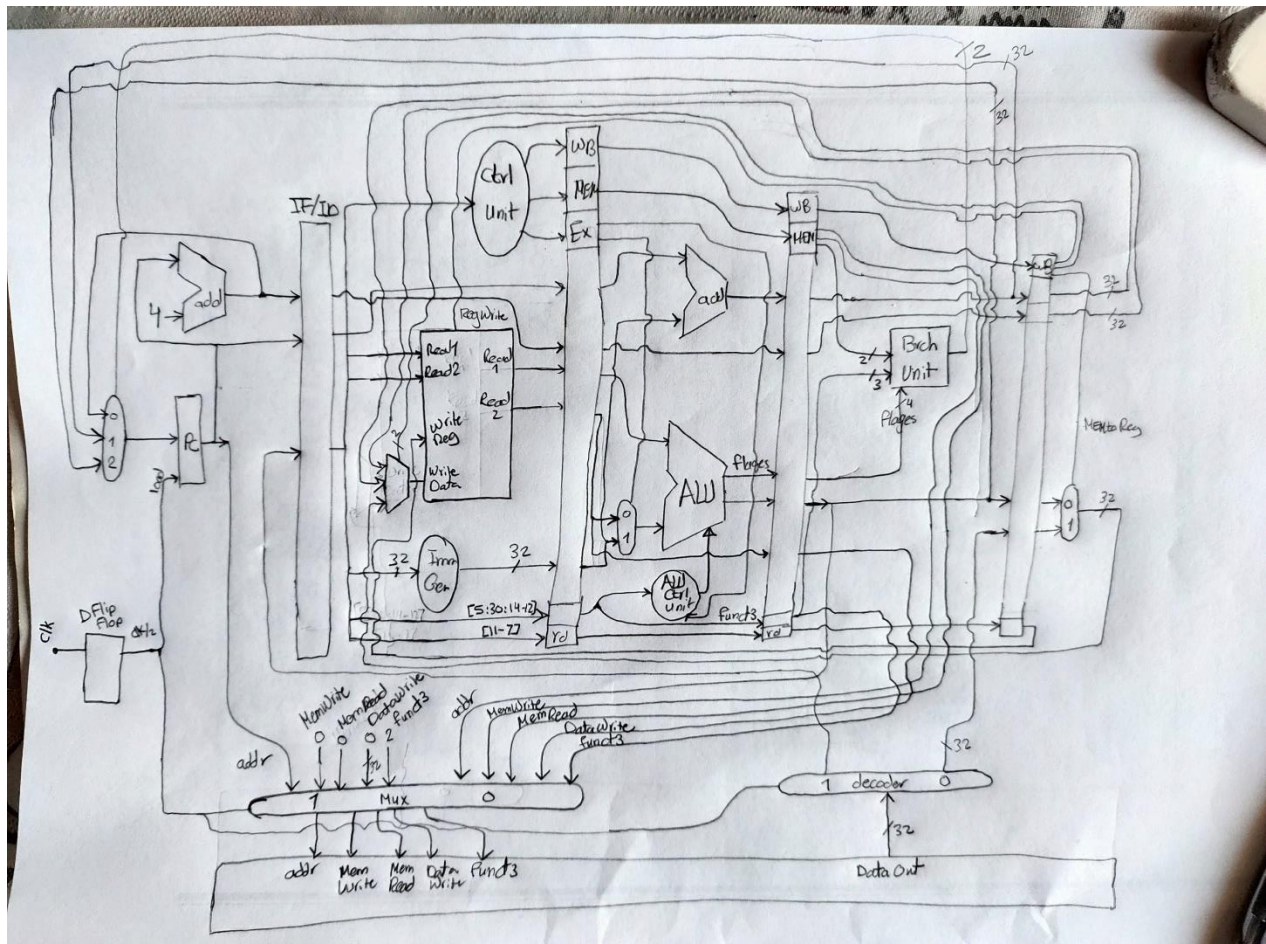 2
32
32
IF/ID
Ctrl
Unit
WB
MEM
EX
WB
MEM
WB
32
32
add
4
add
RegWrite
Read1
Read2
Read
1
Read
2
Write
Reg
Write
Data
2
Brch
Unit
2
3
4
flages
MEMtoReg
0
1
2
PC
load
flages
ALU
0
1
0
1
32
32
Imm
Gen
32
ALU
Ctrl
unit
[5:30:14-12]
[11-7]
rd
funct3
rd
Clk
DFlip
Flop
MemWrite
MemRead
DataWrite
funct3
0
0
0
2
32
addr
addr
MemWrite
MemRead
DataWrite
funct3
1
Mux
0
32
1
decoder
0
32
addr
Mem
Write
Mem
Read
Data
Write
Funct3
Data Out